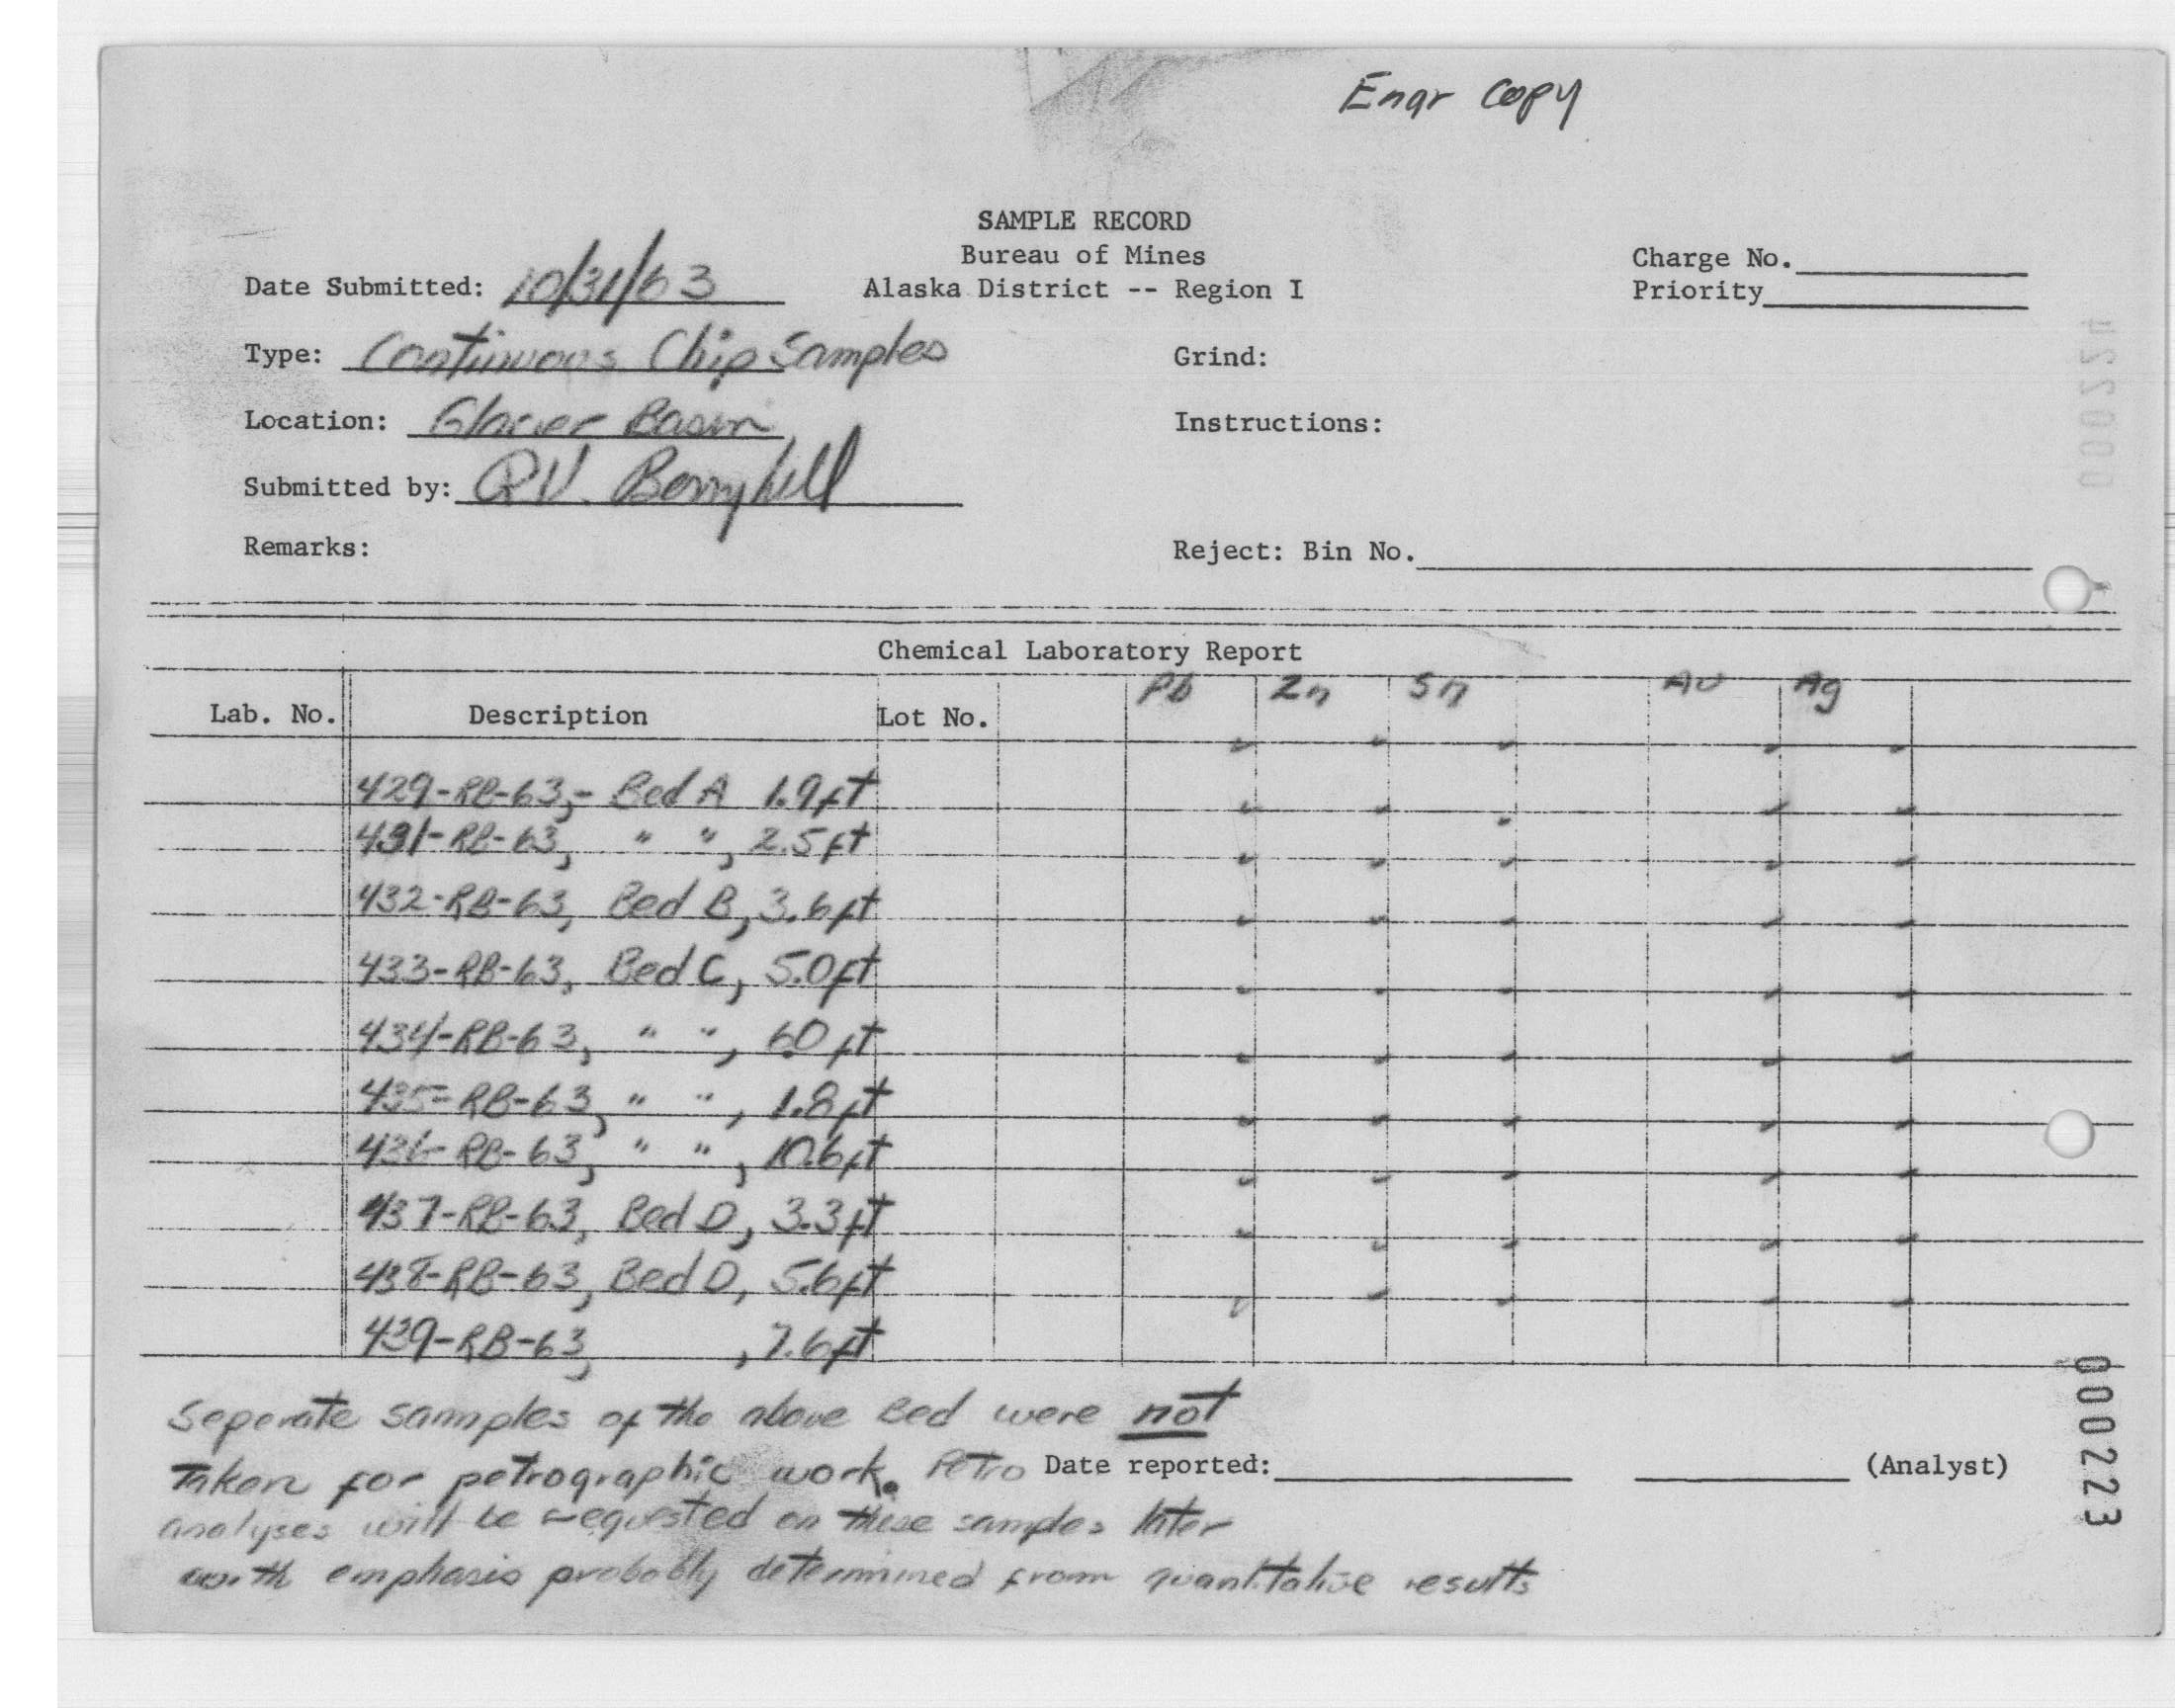 Engr Copy
SAMPLE RECORD
Bureau of Mines
Alaska District -- Region I
Charge No.
Priority
Date Submitted: 10/31/63
Type: Continuous Chip Samples
Grind:
Location: Glacier Basin
Instructions:
Submitted by: R.V. Berryhill
Remarks:
Reject: Bin No.
000224
Chemical Laboratory Report
Lab. No. Description Lot No. Pb Zn Sn Au Ag
429-RB-63,- Bed A 1.9ft
431-RB-63, " ", 2.5ft
432-RB-63, Bed B, 3.6ft
433-RB-63, Bed C, 5.0ft
434-RB-63, " ", 6.0 ft
435-RB-63, " ", 1.8ft
436-RB-63, " ", 10.6ft
437-RB-63, Bed D, 3.3ft
438-RB-63, Bed D, 5.6ft
439-RB-63, , 7.6ft
Seperate samples of the above Bed were not
Taken for petrographic work. Petro
Date reported: (Analyst)
analyses will be requested on these samples later
with emphasis probably determined from quantitative results
000223